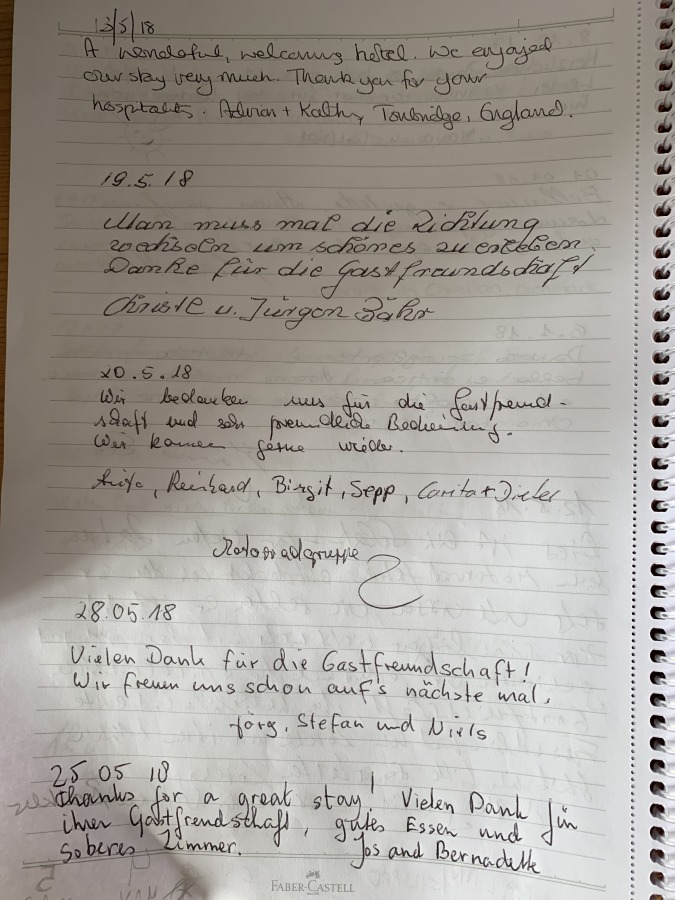 13/5/18
A wonderful, welcoming hotel. We enjoyed
our stay very much. Thank you for your
hospitality. Adrian + Kathy, Tonbridge, England.
19.5.18
Man muss mal die Richtung
wechseln um schönes zu erleben.
Danke für die Gastfreundschaft
Christl u. Jürgen Bähr
20.5.18
Wir bedanken uns für die Gastfreund-
schaft und sehr freundliche Bedienung.
Wir kommen gerne wieder.
Anita, Reinhard, Birgit, Sepp, Carita + Dieter
Motorradgruppe
28.05.18
Vielen Dank für die Gastfreundschaft!
Wir freuen uns schon auf's nächste mal.
Jörg, Stefan und Niels
25 05 18
thanks for a great stay! Vielen Dank für
ihrer Gastfrendschaft, gutes Essen und
soberes Zimmer. Jos and Bernadette
FABER-CASTELL